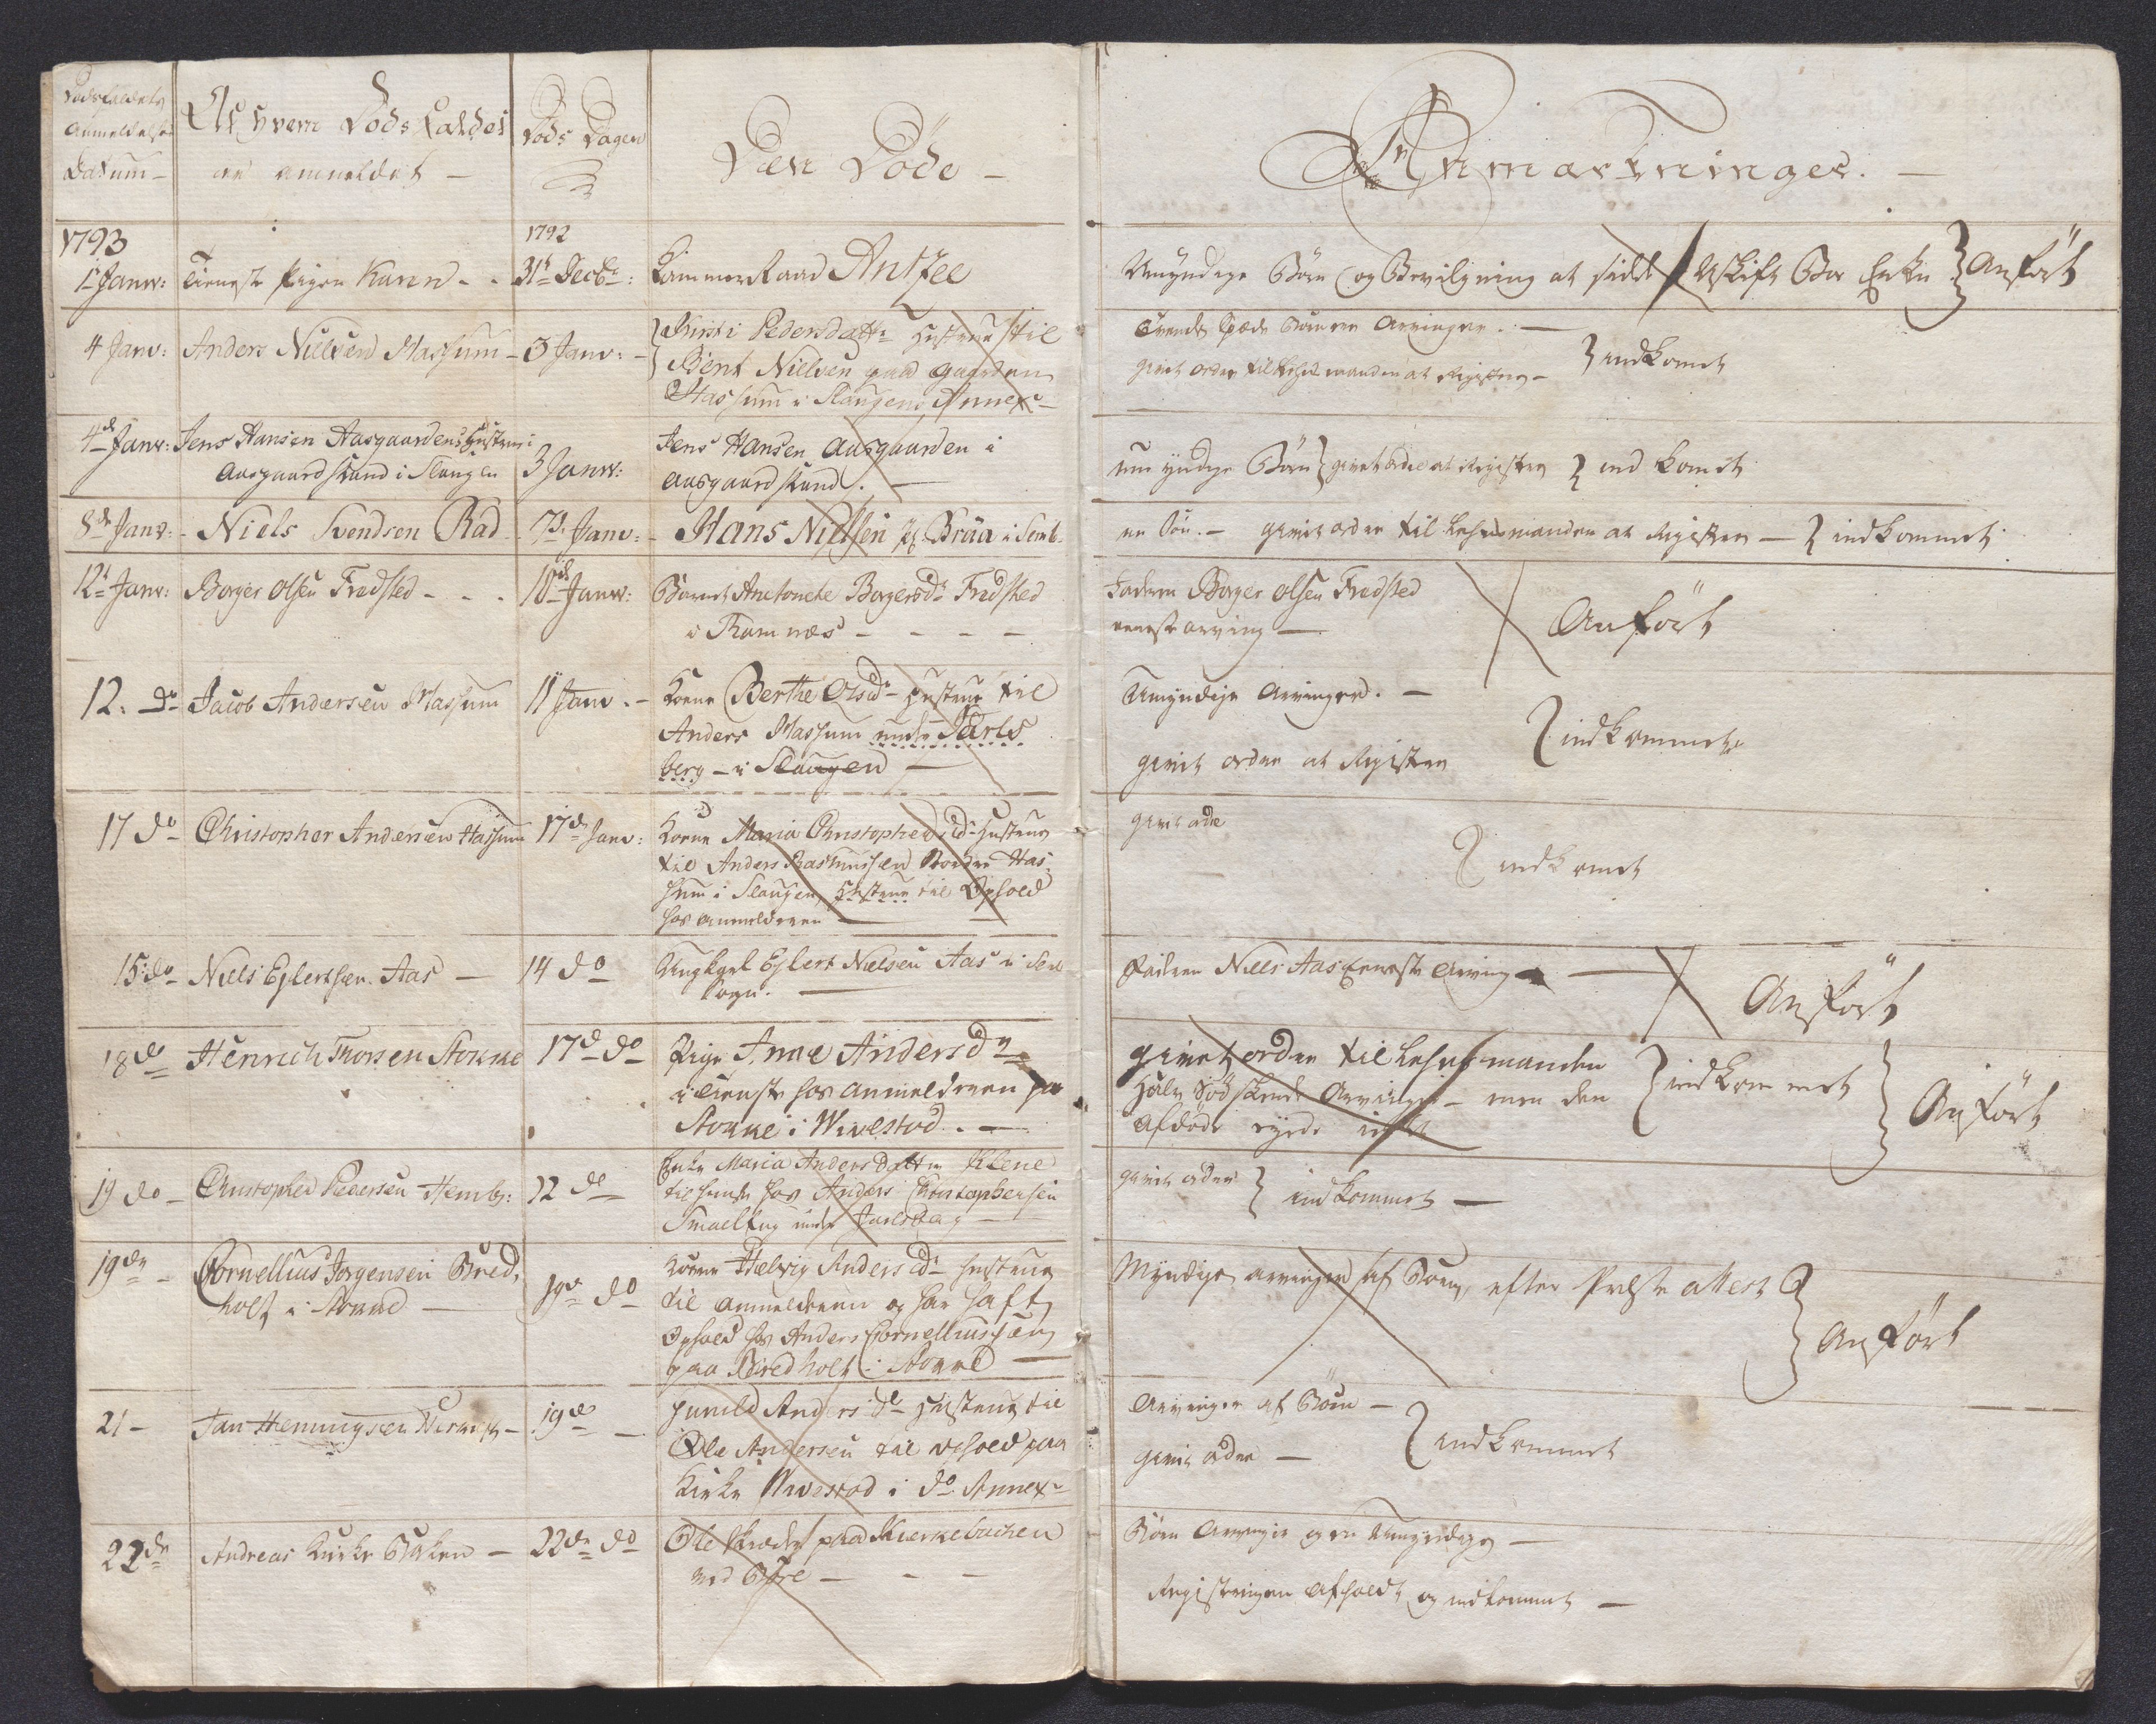 Dødsfaldets
Anmeldelses
Datum -
Af hvem Døds Faldet
er anmeldet -
Døds Dagen
Den Döde -
Anmærkninger. -
1793
1te Janv: Tieneste Pigen Karen - -
1792
31te Decbr:
Kammer Raad Antzee
Umyndige Börn og Bevilgning at sidde i Uskift Boe Enke } Anfört
4 Janv: Anders Nielsen Hassum - 3 Janv: -
Kirsti Pedersdattr Hustrue til
Bent Nielsen paa gaarden
Hassum i Slaugens Annex -
Arvinger. -
givet ordre til Lehnsmanden at Registere -
} indkomet
4de Janv: Jens Hansen Aasgaardens Hustrue i
Aasgaardstrand i Slaugen
3 Janv:
Jens Hansen Aasgaarden i
Aasgaardstrand. -
umyndige Börn } givet ordre at Registere } indkomet
8de Janv: - Niels Svendsen Rad - 7de Janv: - Hans Nielsen Bråa i Semb.
en Sön. - givet ordre til Lehnsmanden at Registere - } indkommet
12te Janv: Borger Olsen Fredsted - - - 10de Janv:
Barnet Anetonete Borgersdr Fredsted
i Ramnæs - - - -
Faderen Borger Olsen Fredsted
eneste arving -
Anfört
12. do Jacob Andersen Hassum 11 Janv. -
Konen Berthe Olsdr Hustrue til
Anders Hassum under Jarls
berg - i Slaugen -
Umyndige Arvinger. -
givet ordre at Registere
} indkommet
17 do - Christopher Andersen Hassum 17de Janv:
Konen Maria Christophersdr Hustrue
til Anders Rasmussen Nordre Has
sum i Slaugen, Hustrue til Ophold
hos anmelderen -
givet ordre
} indkomet
15: do - Niels Eylertsen Aas - 14 do
Ungkarl Eylert Nielsen Aas i Sem
Sogn. -
Faderen Niels Aas Eneste Arving -
Anfört
18 do Henrich Thorsen Stokke 17de do
Pige Anne Andersdr
i tieneste hos Anmelderen paa
Stokke i Wivestad. -
givet ordre til Lehnsmanden
Halv Södskende Arvinger - men den
Afdöde eyede intet
} indkommet } Anfört
19 do - Christopher Pedersen Hemb: 12 do
Enke Maria Andersdatter Klene
tilhuuse hos Anders Christophersen
Smaalung under Jarlsberg -
givet ordre } indkommet -
19de - Cornellius Jørgensen Bred,
holt i Stokke -
19de do
Konen Helvig Andersdr Hustrue
til anmelderen og har haft
Ophold hos Anders Cornelliussen
paa Bredholt i Stokke -
Myndige arvinger af Börn, efter Præste attest
} Anført
21 - Jan Henningsen - 19de -
Gunild Andersdr Hustrue til
Ole Andersen til ophold paa
Kirke Wivestad i do Annex -
Arvinger af Börn -
givet ordre -
} indkommet
22de Andreas Kirke Bakken - 22de do
Ole paa Kierkebachen
ved Borre - - -
Börn Arvinger og en Umyndige -
Registeringen afholdt og indkommet -